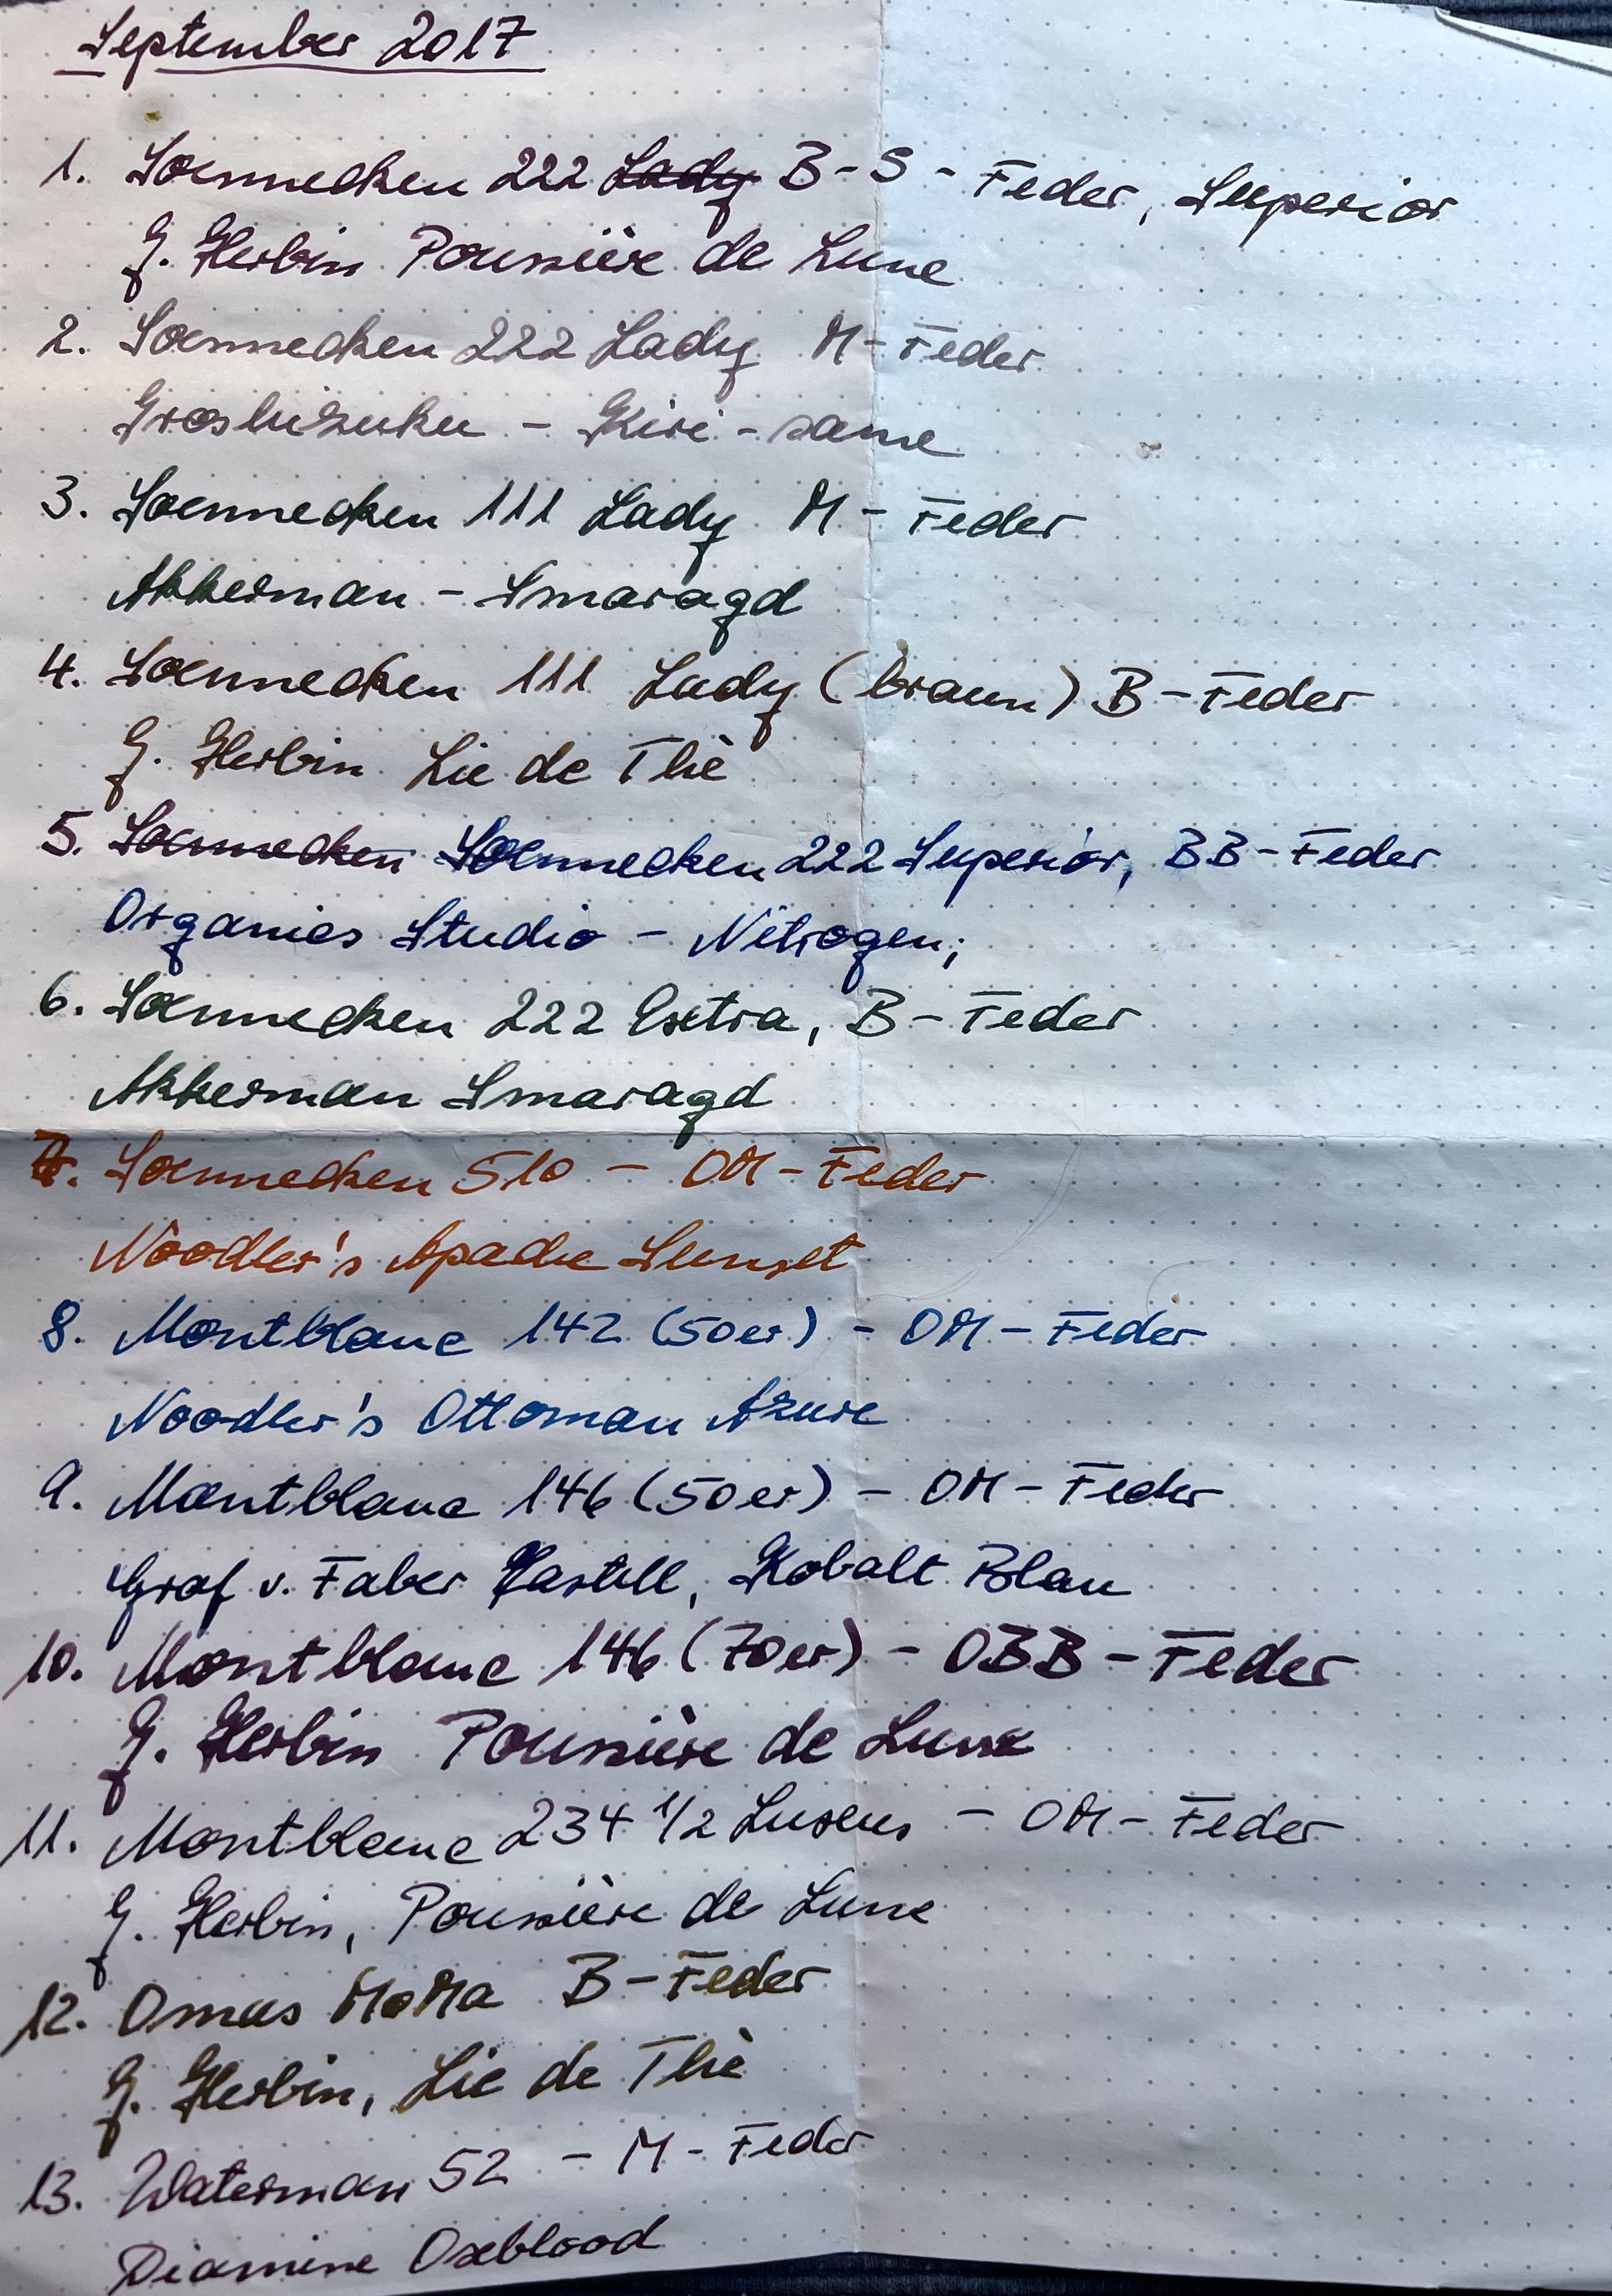 September 2017
1. Soennecken 222 Lady B-S-Feder, Superior
J. Herbin Poussière de Lune
2. Soennecken 222 Lady M-Feder
Iroshizuku - Kiri-same
3. Soennecken 111 Lady M-Feder
Akkerman - Smaragd
4. Soennecken 111 Lady (braun) B-Feder
J. Herbin Lie de Thè
5. Soennecken Soennecken 222 Superior, BB-Feder
Organics Studio - Nitrogen;
6. Soennecken 222 Extra, B-Feder
Akkerman Smaragd
7. Soennecken 510 - OM-Feder
Noodler's Apache Sunset
8. Montblanc 142 (50er) - OM-Feder
Noodler's Ottoman Azure
9. Montblanc 146 (50er) - OM-Feder
Graf v. Faber Kastell, Kobalt Blau
10. Montblanc 146 (70er) - OBB-Feder
J. Herbin Poussière de Lune
11. Montblanc 234 1/2 Luxus - OM-Feder
J. Herbin, Poussière de Lune
12. Omas MoMa B-Feder
J. Herbin, Lie de Thè
13. Waterman 52 - M-Feder
Diamine Oxblood